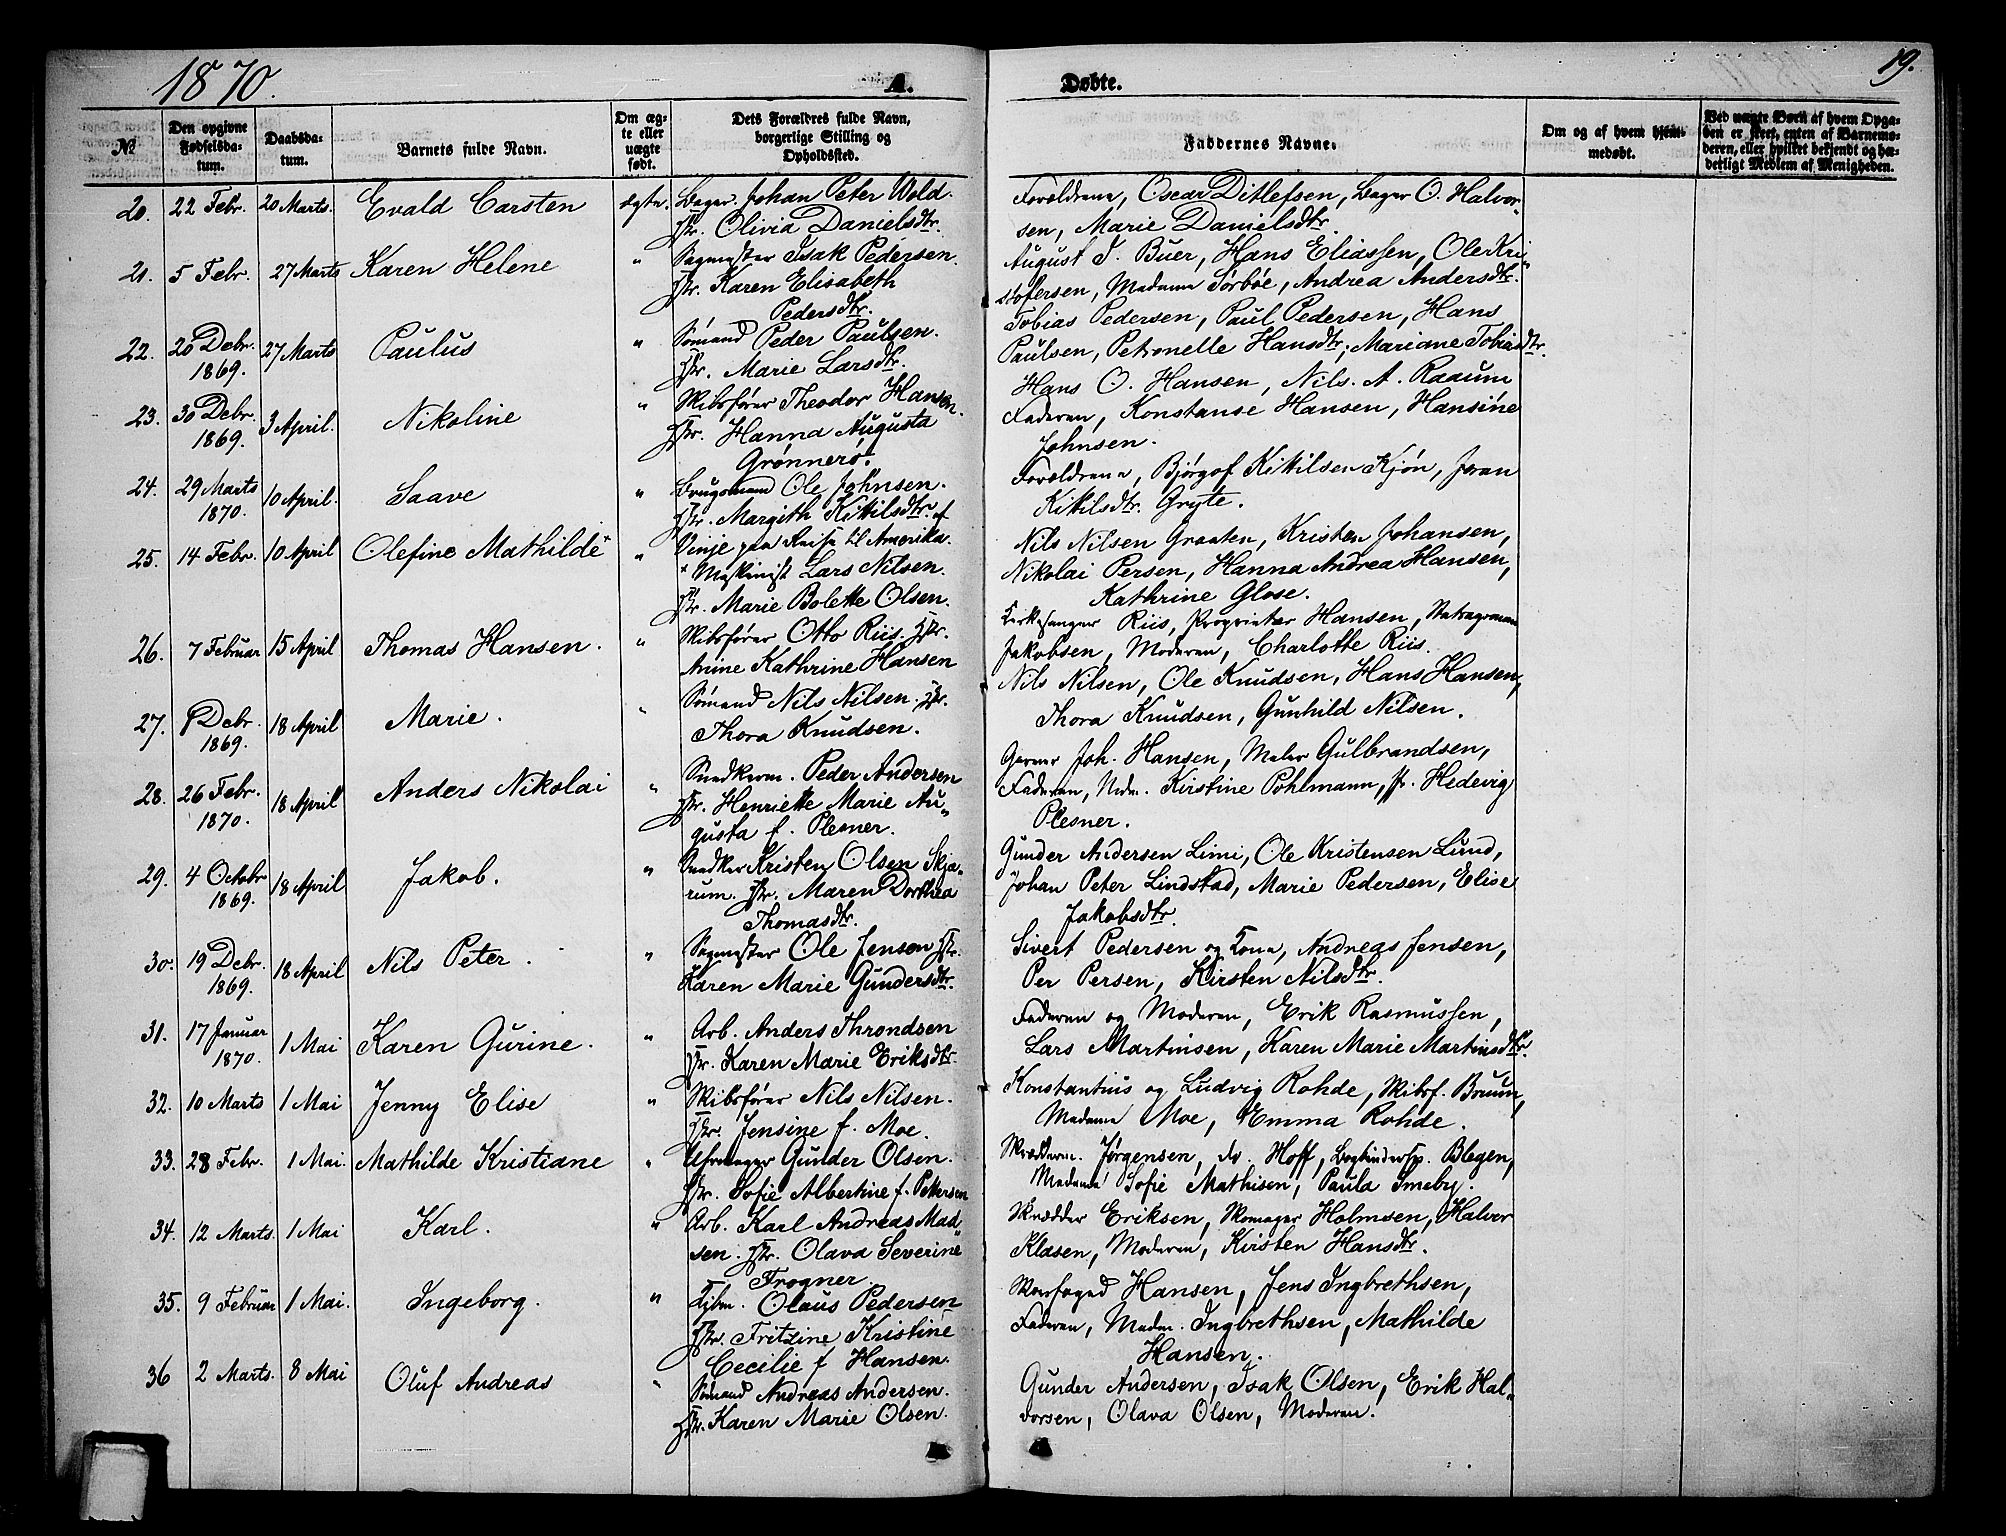 1870.
A.
Døbte.
19.
№
Den opgivne Fødselsdatum.
Daabsdatum.
Barnets fulde Navn.
Om ægte eller uægte født.
Dets Forældres fulde Navn, borgerlige Stilling og Opholdssted.
Faddernes Navne.
Om og af hvem hjemmedøbt.
Ved uægte Børn af hvem Opgaven er skeet, enten af Barnemoderen, eller hvilket bekjendt og hæderligt Medlem af Menigheden.
20. 22 Febr. 20 Marts. Evald Carsten ægte. Bager Johan Peter Wold.
Hstr. Olivia Danielsdtr.
Forældrene, Oscar Ditlefsen, Bager O. Halvor-
sen, Marie Danielsdtr.
21. 5 Febr. 27 Marts Karen Helene " Sagmester Isak Pedersen.
Hstr. Karen Elisabeth
Pedersdtr.
August T. Buer, Hans Eliassen, Ole Kri-
stofersen, Madame Sørbøe, Andrea Andersdtr.
22. 20 Debr. 1869. 27 Marts Paulus " Sømand Peder Paulsen.
Hstr. Marie Larsdtr.
Tobias Pedersen, Paul Pedersen, Hans
Paulsen, Petronelle Hansdtr, Mariane Tobiasdtr.
23. 30 Debr. 1869. 3 April. Nikoline " Skibsfører Theodor Hansen.
Hstr. Hanna Augusta
Grønnerø.
Hans O. Hansen, Nils. A. Raaum
Faderen, Konstanse Hansen, Hansine
Johnsen.
24. 29 Marts 1870. 10 April. Saave " Brugsmand Ole Johnsen.
Hstr. Margith Kittilsdtr. af
Vinje paa Reise til Amerika.
Forældrene, Bjørgof Kittilsen Kjøn, Joran
Kittilsdtr. Gryte.
25. 14 Febr. 10 April Olefine Mathilde + "
+ Maskinist Lars Nilsen.
Hstr. Marie Bolette Olsen.
Nils Nilsen Graaten, Kristen Johansen,
Nikolai Persen, Hanna Andrea Hansen,
Kathrine Glose.
26. 7 Februar 15 April Thomas Hansen. " Skibsfører Otto Riis. Hstr.
Anine Kathrine Hansen
Kirkesanger Riis, Proprietær Hansen,
Jakobsen, Moderen, Charlotte Riis.
27. Debr. 1869. 18 April Marie. " Sømand Nils Nilsen. Hstr.
Thora Knudsen.
Nils Nilsen, Ole Knudsen, Hans Hansen,
Thora Knudsen, Gunhild Nilsen.
28. 26 Febr. 1870. 18 April Anders Nikolai " Snedkerm. Peder Andersen
Hstr. Henriette Marie Au-
gusta f. Plesner.
Garver Joh. Hansen, Maler Gulbrandsen,
Faderen, Mdm. Kirstine Pohlmann, Jf. Hedevig
Plesner.
29. 4 Octobr 1869. 18 April Jakob. " Snedker Kristen Olsen Skja-
rum. Hstr. Maren Dorthea
Thomasdtr.
Gunder Andersen Limi, Ole Kristensen Lund,
Johan Peter Lindstad, Marie Pedersen, Elise
Jakobsdtr.
30. 19 Debr. 1869. 18 April Nils Peter. " Sagmester Ole Jensen Hstr.
Karen Marie Gundersdtr.
Sivert Pedersen og Kone, Andreas Jensen,
Per Persen, Kirsten Nilsdtr.
31. 17 Januar 1870. 1 Mai Karen Gurine. " Arb. Anders Throndsen
Hstr. Karen Marie Eriksdtr.
Faderen og Moderen, Erik Rasmussen,
Lars Martinsen, Karen Marie Martinsdtr.
32. 10 Marts 1 Mai Jenny Elise " Skibsfører Nils Nilsen.
Hstr. Jensine f. Moe.
Konstantius og Ludvig Rohde, Skibsf. Bruun,
Madame Moe, Emma Rohde.
33. 28 Febr. 1 Mai. Mathilde Kristiane " Uhrmager Gunder Olsen.
Hstr. Sofie Albertine f. Pettersen
Skrædderm. Jørgensen, do. Hoff, Blegen,
Madame Sofie Mathisen, Paula Smeby.
34. 12 Marts. 1 Mai Karl. " Arb. Karl Andreas Mad-
sen. Hstr. Olava Severine
Frogner.
Skrædder Eriksen, Skomager Holmsen, Halvor
Klasen, Moderen, Kirsten Hansdtr.
35. 9 Februar 1 Mai. Ingeborg. " Kjbm. Olaus Pedersen
Hstr. Fritzine Kristine
Cecilie f Hansen.
Skovfoged Hansen, Jens Ingbrethsen,
Faderen, Madm. Ingbrethsen, Mathilde
Hansen.
36 2 Marts. 8 Mai Oluf Andreas " Sømand Andreas Andersen.
Hstr. Karen Marie Olsen.
Gunder Andersen, Isak Olsen, Erik Hal-
vorsen, Olava Olsen, Moderen.